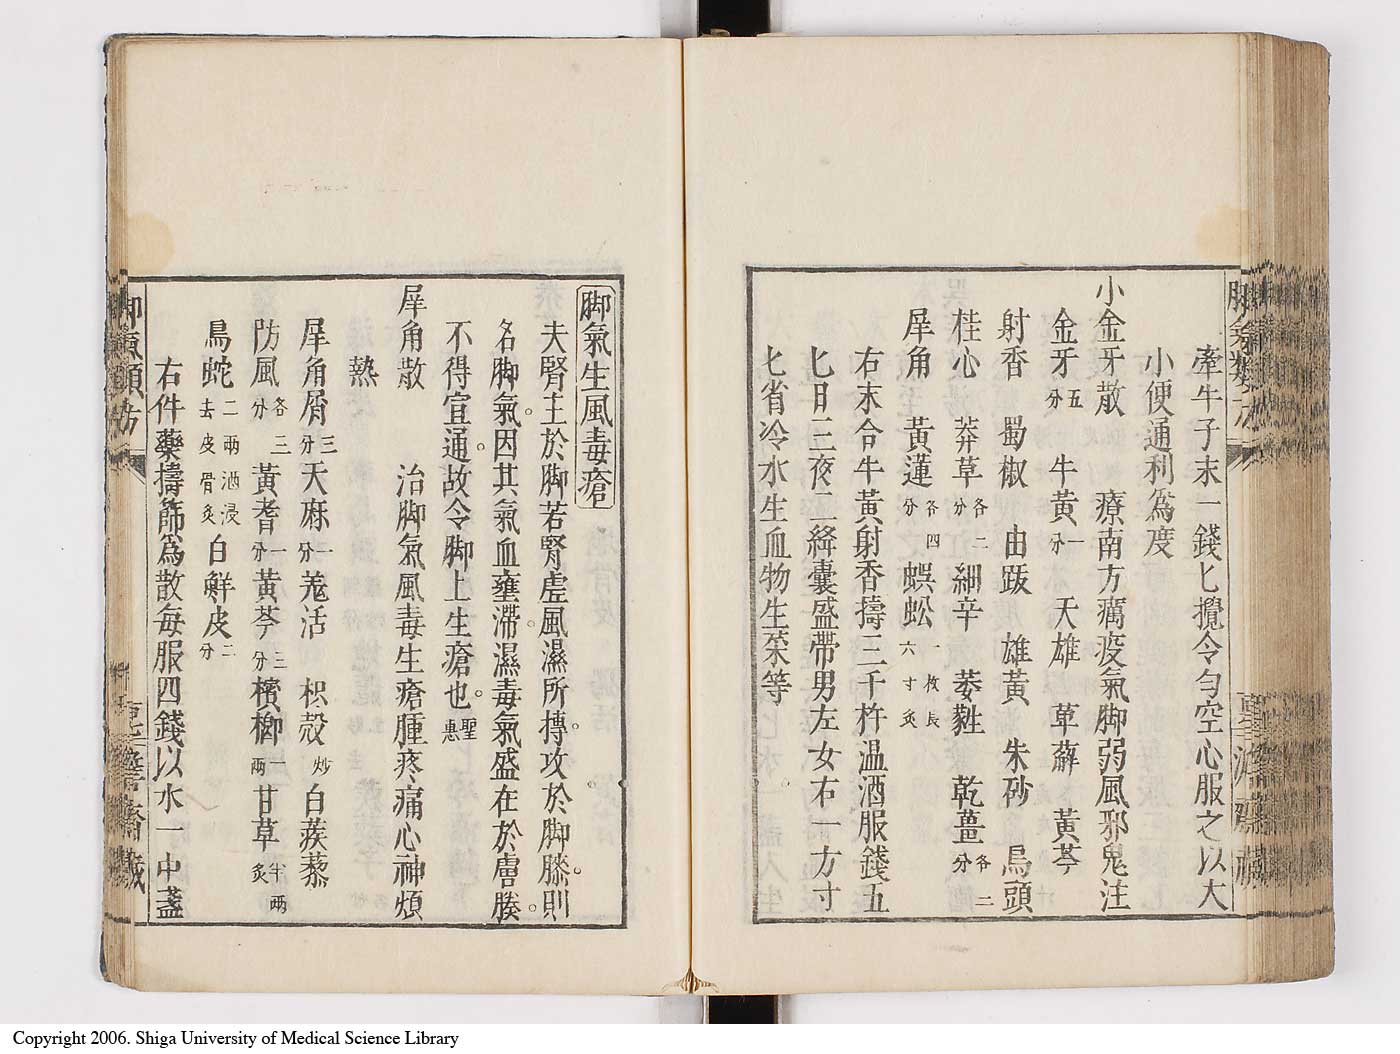 牽牛子末一錢匕攪令勻空心服之以大
小便通利爲度
小金牙散　療南方癘疫氣脚弱風邪鬼注
金牙五分　牛黃一分　天雄　萆薢　黃芩
射香　蜀椒　由跋　雄黃　朱砂　烏頭
桂心　莽草各二分　細辛　萎麰　乾薑各二分
犀角　黃蓮各四分　蜈蚣一枚長六寸炙
右末合牛黃射香擣三千杵温酒服錢五
匕日三夜二絳囊盛帶男左女右一方寸
匕省冷水生血物生菜等
脚氣生風毒瘡
夫腎主於脚若腎虛風濕所摶攻於脚膝則
名脚氣因其氣血壅滯濕毒氣盛在於膚腠
不得宣通故令脚上生瘡也聖惠
犀角散　治脚氣風毒生瘡腫疼痛心神煩
熱
犀角屑三分　天麻一分　羌活　枳殼炒　白蒺藜
防風各三分　黃耆一分　黃芩三分　檳榔一兩　甘草半兩炙
烏蛇二兩酒浸去皮骨炙　白鮮皮二分
右件藥擣篩爲散每服四錢以水一中盞
脚氣類方
Copyright 2006. Shiga University of Medical Science Library